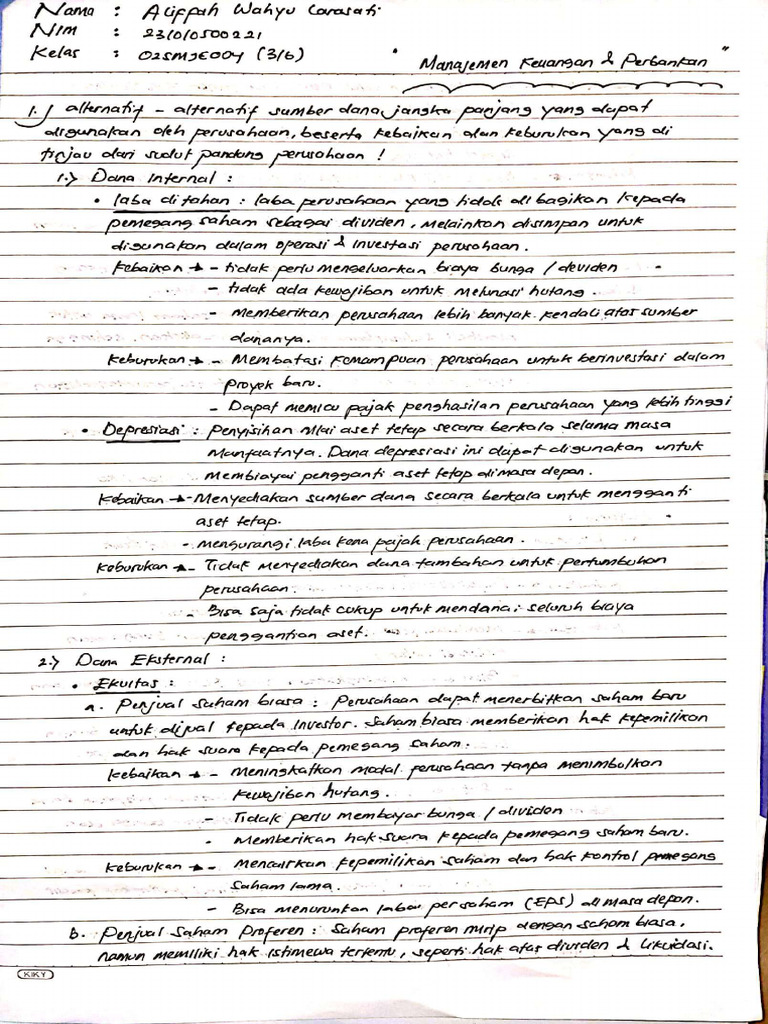 Nama : Aliffah Wahyu Larasati
NIM : 231010500221
Kelas : 02SMJE004 (3/6)
" Manajemen Keuangan & Perbankan "
1.) alternatif - alternatif sumber dana jangka panjang yang dapat
digunakan oleh perusahaan, beserta kebaikan dan keburukan yang di
tinjau dari sudut pandang perusahaan !
1.) Dana Internal :
• laba ditahan : laba perusahaan yang tidak dibagikan kepada
pemegang saham sebagai dividen, melainkan disimpan untuk
digunakan dalam operasi & investasi perusahaan.
kebaikan → - tidak perlu mengeluarkan biaya bunga / deviden
- tidak ada kewajiban untuk melunasi hutang.
- memberikan perusahaan lebih banyak kendali atas sumber
dananya.
keburukan → - Membatasi kemampuan perusahaan untuk berinvestasi dalam
proyek baru.
- Dapat memicu pajak penghasilan perusahaan yang lebih tinggi
• Depresiasi : penyisihan nilai aset tetap secara berkala selama masa
manfaatnya. Dana depresiasi ini dapat digunakan untuk
membiayai pengganti aset tetap dimasa depan.
kebaikan → - Menyediakan sumber dana secara berkala untuk mengganti
aset tetap.
- mengurangi laba kena pajak perusahaan.
keburukan → - Tidak menyediakan dana tambahan untuk pertumbuhan
perusahaan.
- Bisa saja tidak cukup untuk mendanai seluruh biaya
penggantian aset.
2.) Dana Eksternal :
• Ekuitas :
a. Penjual saham biasa : Perusahaan dapat menerbitkan saham baru
untuk dijual kepada investor. Saham biasa memberikan hak kepemilikan
dan hak suara kepada pemegang saham.
kebaikan → - Meningkatkan modal perusahaan tanpa menimbulkan
kewajiban hutang.
- Tidak perlu membayar bunga / dividen
- Memberikan hak suara kepada pemegang saham baru.
keburukan → - Mencairkan kepemilikan saham dan hak kontrol pemegang
saham lama.
- Bisa menurunkan laba per saham (EPS) di masa depan.
b. Penjual Saham Proferen : Saham proferen mirip dengan saham biasa,
namun memiliki hak istimewa tertentu, seperti hak atas dividen & likuidasi.
KIKY